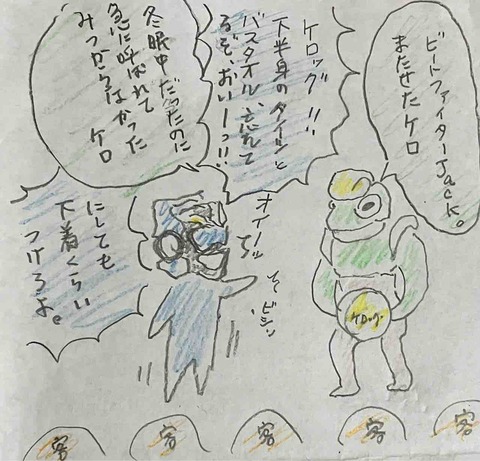 ビートファイターJack。
またせたケロ
ケロッグ!!!
下半身のタイツと
バスタオル、忘れて
るぞ、おいーっ!!
冬眠中だったのに
急に呼ばれて
みつからなかった
ケロ
にしても
下着くらい
つけろよ。
オイーッ
ビシッ
KDog.
客
客
客
客
客